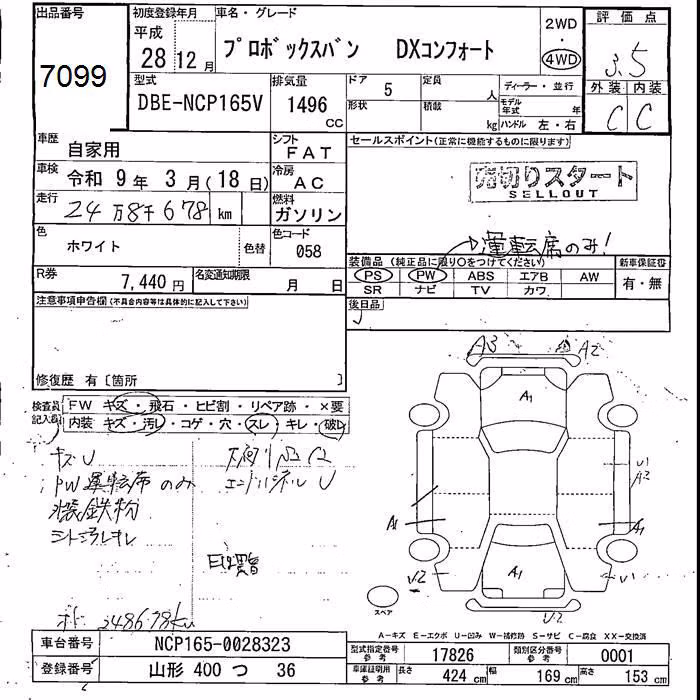 出品番号 初度登録年月 車名・グレード 2WD 評価点
7099 平成 28 12月 プロボックスバン DXコンフォート ・ 4WD 3.5
型式 排気量 ドア 5 定員 人 ディーラー・並行 外装 内装
DBE-NCP165V 1496 CC 形状 積載 kg モデル年式 年 C C
ハンドル 左・右
車歴 自家用 シフト FAT セールスポイント(正常に機能するものに限ります)
車検 令和 9年 3月(18日) 冷房 AC 売切りスタート
SELLOUT
走行 24万8千678 km 燃料 ガソリン
色 ホワイト 色替 色コード 058 運転席のみ!
装備品(純正品に限り○をつけてください) 新車保証書
R券 7,440円 名変通知期限 月 日 PS PW ABS エアB AW 有・無
SR ナビ TV カワ
注意事項申告欄(不具合内容等は具体的に記入して下さい) 後日品
修復歴 有〔箇所 〕
A3 A2
A1
検査員記入欄 FW キズ・飛石・ヒビ割・リペア跡・×要
内装 キズ・汚レ・コゲ・穴・スレ・キレ・破レ
キズU
PW運転席のみ エンドパネルU
U1
A2
鉄粉
A1 A1
シート汚レキレ
A1
U2 U1
スペア
U2
A-キズ E-エクボ U-凹み W-補修跡 S-サビ C-腐食 XX-交換済
車台番号 NCP165-0028323 型式指定番号 参考 17826 類別区分番号 参考 0001
登録番号 山形 400 つ 36 車庫証明用 参考 長さ 424 cm 幅 169 cm 高さ 153 cm